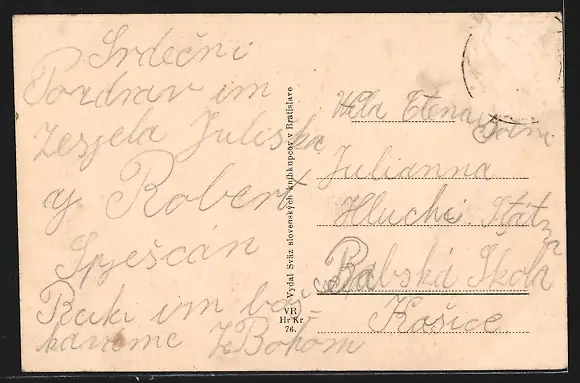 Srdečni
Pozdrav im
zesjela Juliška
aj Robert
Spješcán
Ruki im boz
kavame Z Bohom
Vydal Sväz slovenských kníhkupcov v Bratislave
VR
HrKr
76.
Ctena
Julianna
Hluchi. Štátza
Babská Škola
Košice.